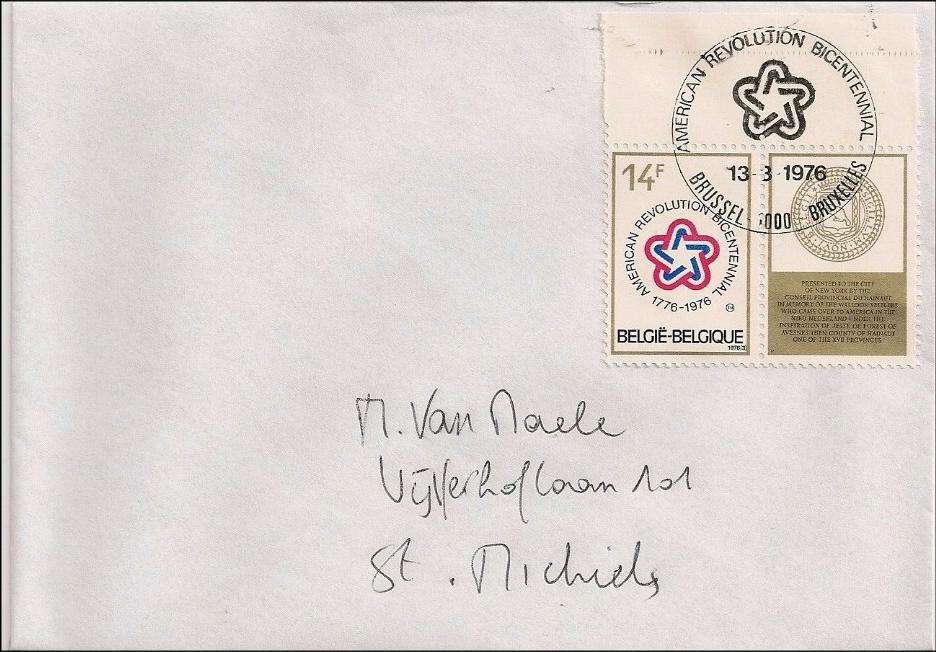 AMERICAN REVOLUTION BICENTENNIAL
13-3 1976
BRUSSEL 1000 BRUXELLES
14F
AMERICAN REVOLUTION BICENTENNIAL
1776-1976
BELGIË-BELGIQUE
1976
PRESENTED TO THE CITY
OF NEW YORK BY THE
CONSEIL PROVINCIAL DU HAINAUT
IN MEMORY OF THE WALLOON SETTLERS
WHO CAME OVER TO AMERICA IN THE
NIEU NEDERLAND UNDER THE
INSPIRATION OF JESSE DE FOREST OF
AVESNES THEN COUNTY OF HAINAUT
ONE OF THE XVII PROVINCES
M. Van Maele
Vijverhoflaan 101
St. Michiels